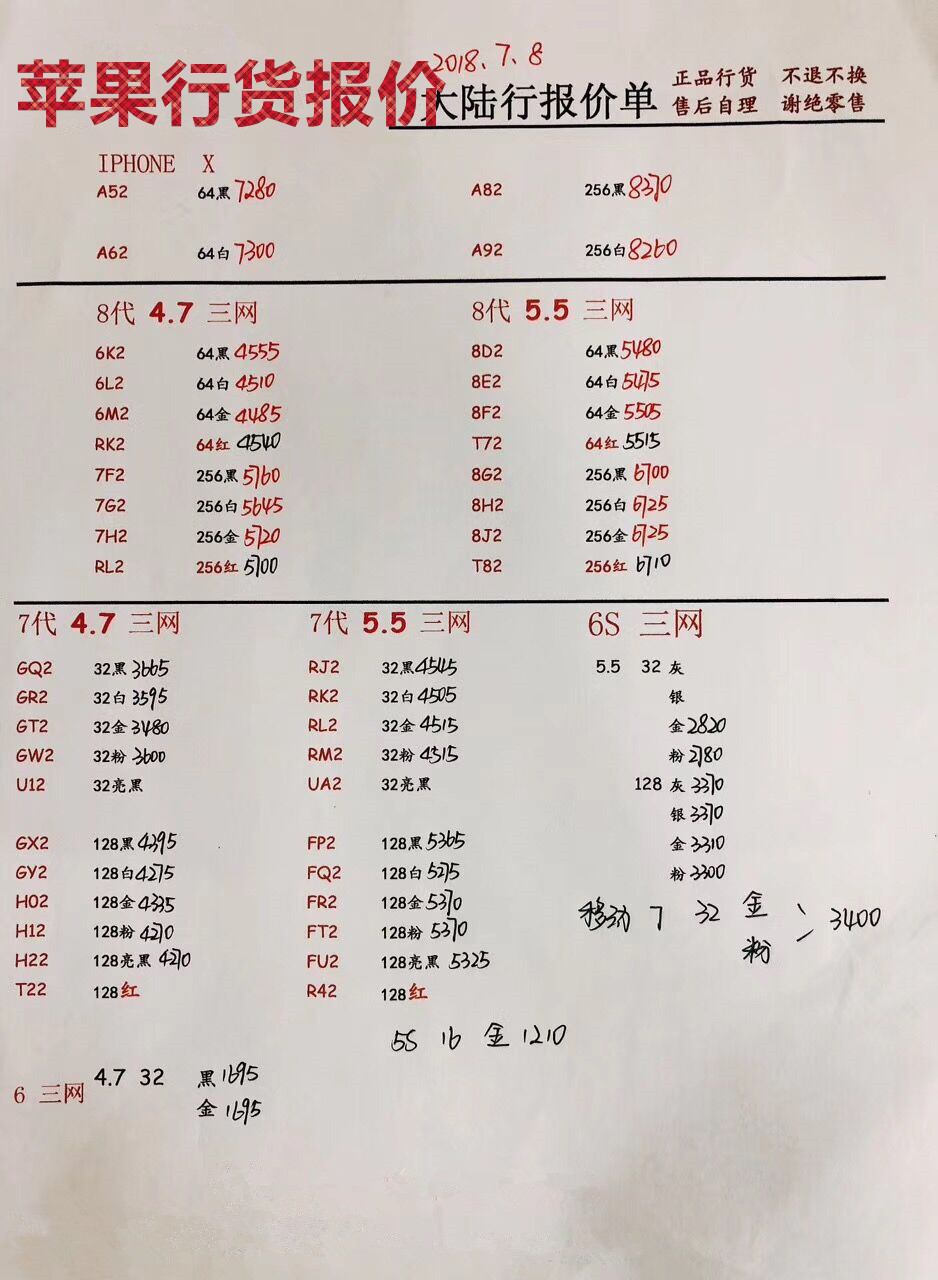 2018.7.8
苹果行货报价
大陆行报价单
正品行货 不退不换
售后自理 谢绝零售
IPHONE X
A52 64黑 7280 A82 256黑 8370
A62 64白 7300 A92 256白 8260
8代 4.7 三网 8代 5.5 三网
6K2 64黑 4555 8D2 64黑 5480
6L2 64白 4510 8E2 64白 5475
6M2 64金 4485 8F2 64金 5505
RK2 64红 4540 T72 64红 5515
7F2 256黑 5760 8G2 256黑 6700
7G2 256白 5645 8H2 256白 6725
7H2 256金 5720 8J2 256金 6725
RL2 256红 5700 T82 256红 6710
7代 4.7 三网 7代 5.5 三网 6S 三网
GQ2 32黑 3665 RJ2 32黑 4545 5.5 32 灰
GR2 32白 3595 RK2 32白 4505 银
GT2 32金 3480 RL2 32金 4515 金 2820
GW2 32粉 3600 RM2 32粉 4515 粉 2780
U12 32亮黑 UA2 32亮黑 128 灰 3370
银 3370
GX2 128黑 4395 FP2 128黑 5365 金 3310
GY2 128白 4275 FQ2 128白 5275 粉 3300
H02 128金 4335 FR2 128金 5370 移动 7 32 金 3400
H12 128粉 4270 FT2 128粉 5370 粉
H22 128亮黑 4270 FU2 128亮黑 5325
T22 128红 R42 128红
5S 16 金 1210
6 三网 4.7 32 黑 1695
金 1695